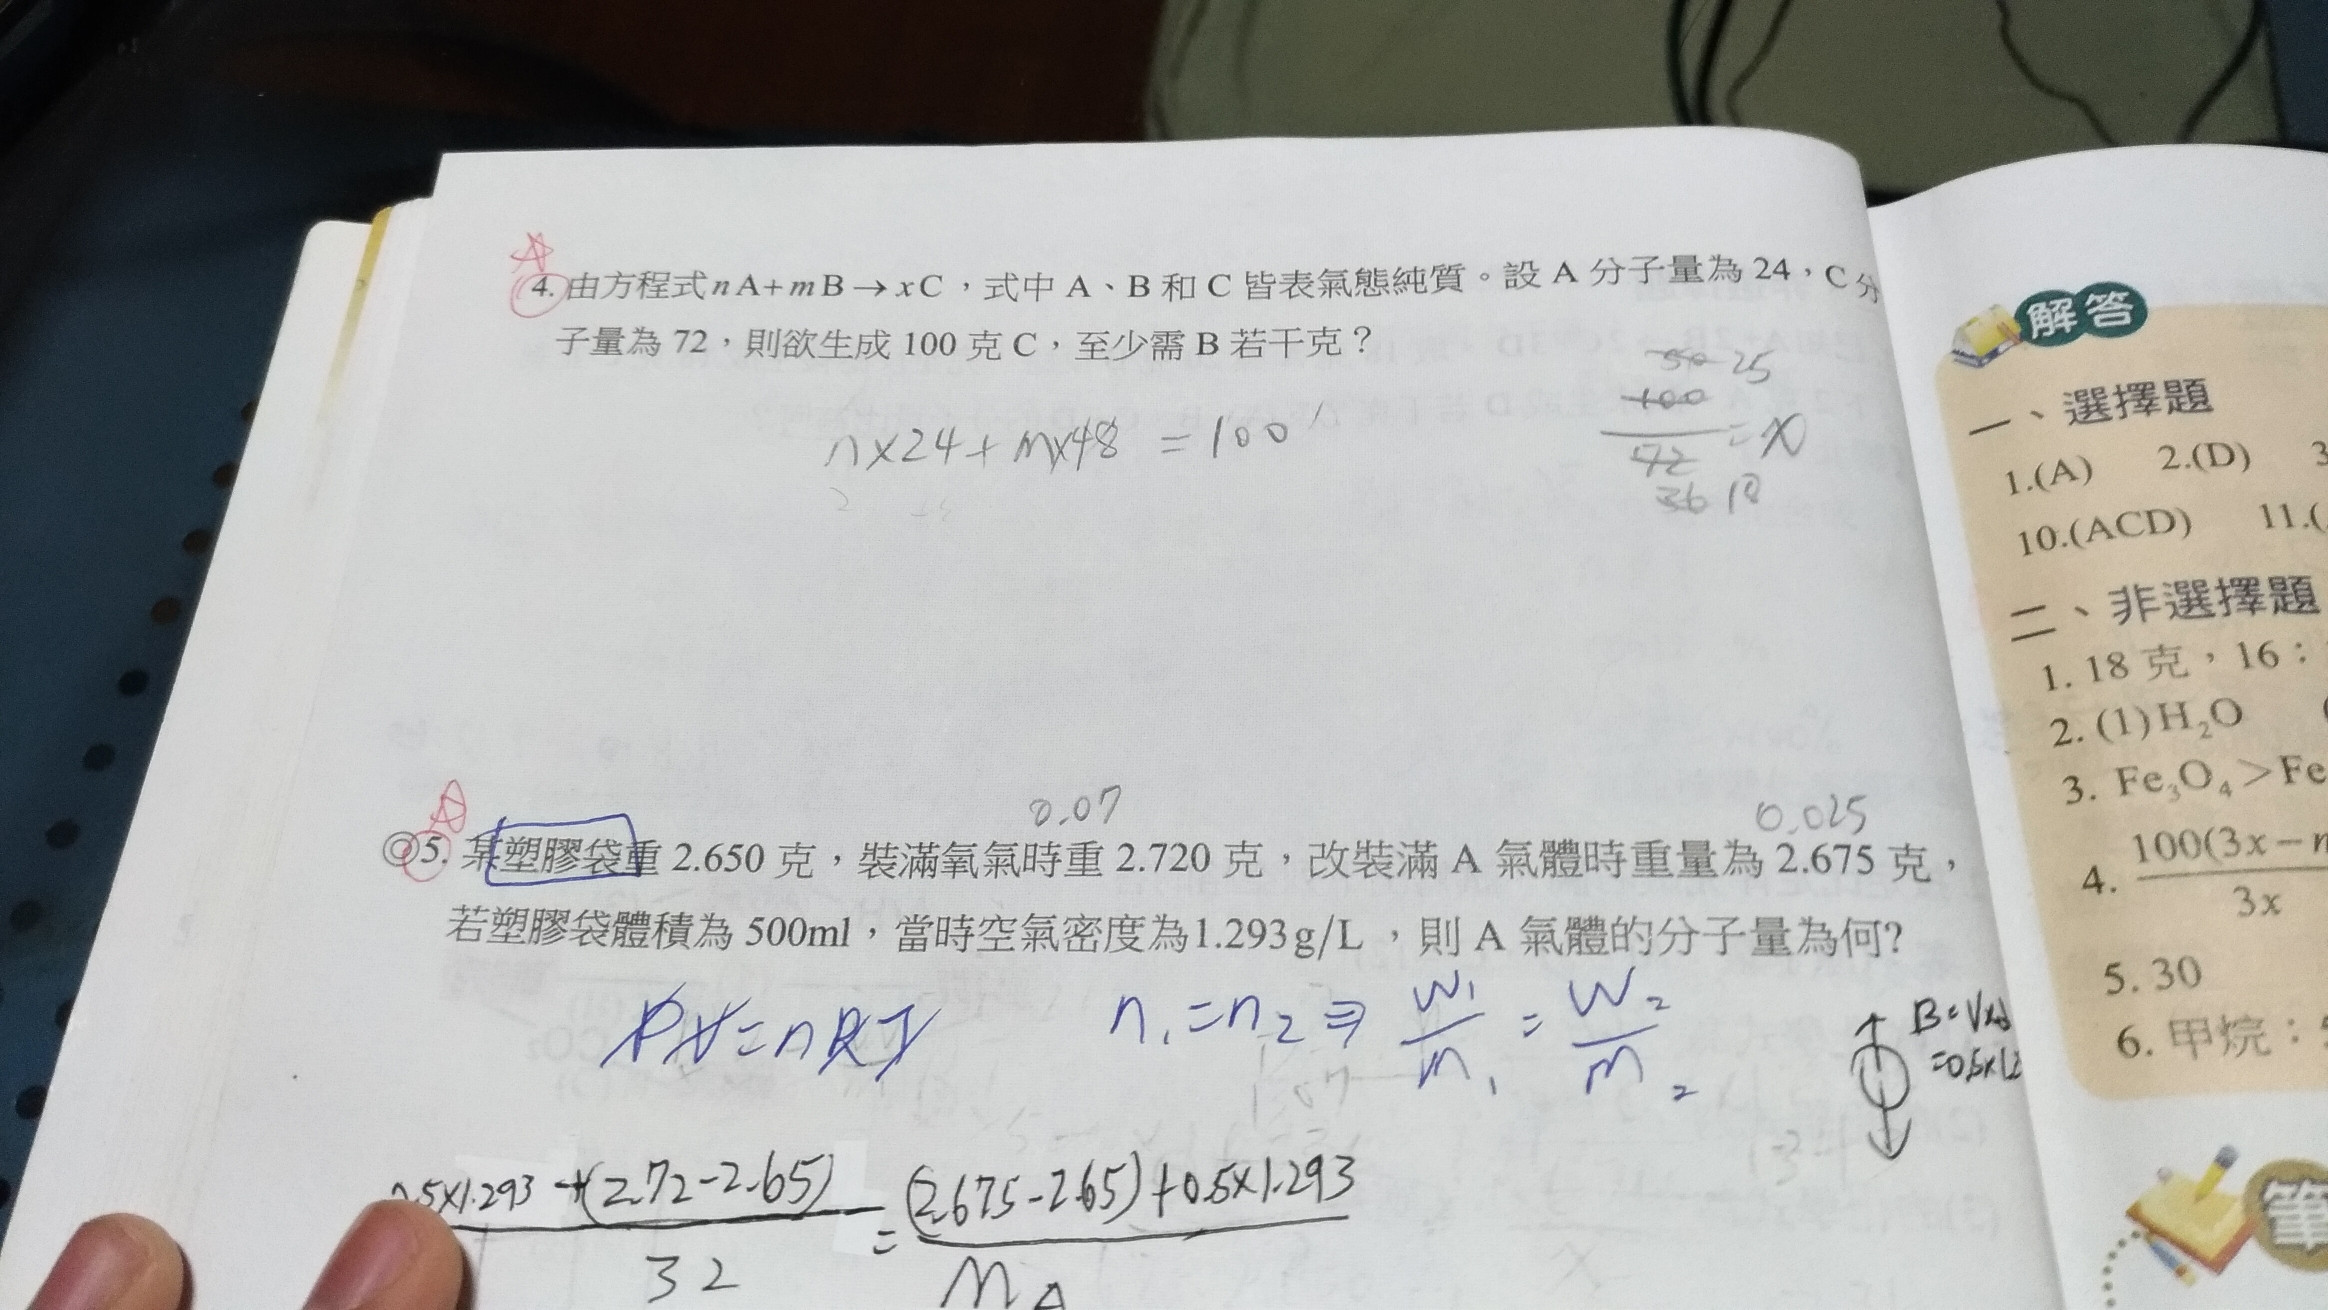 4. 由方程式 nA+mB→xC，式中 A、B 和 C 皆表氣態純質。設 A 分子量為 24，C 分
子量為 72，則欲生成 100 克 C，至少需 B 若干克？
50 25
100
72 = x
36 18
n×24+m×48 = 100
0.07
0.025
◎5. 某塑膠袋重 2.650 克，裝滿氧氣時重 2.720 克，改裝滿 A 氣體時重量為 2.675 克，
若塑膠袋體積為 500ml，當時空氣密度為1.293g/L，則 A 氣體的分子量為何?
PV=nRT
n₁=n₂ ⇒ W₁/m₁ = W₂/m₂
B=V×d
=0.5×1.2
.5×1.293+(2.72-2.65)/32 = (2.675-2.65)+0.5×1.293/M_A
解答
一、選擇題
1.(A) 2.(D) 3
10.(ACD) 11.(
二、非選擇題
1. 18 克，16：
2. (1)H₂O (
3. Fe₃O₄＞Fe
4. 100(3x−n/3x
5. 30
6. 甲烷：
筆